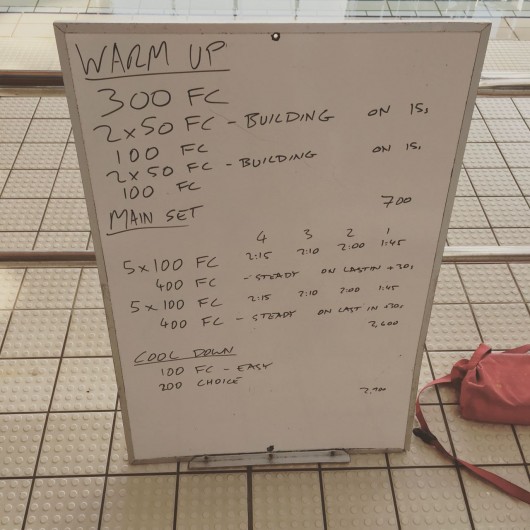 WARM UP
300 FC
2x50 FC - BUILDING ON 15,
100 FC
2x50 FC - BUILDING ON 15,
100 FC
700
MAIN SET
4 3 2 1
5x100 FC 2:15 2:10 2:00 1:45
400 FC - STEADY ON LAST IN +20,
5x100 FC 2:15 2:10 2:00 1:45
400 FC - STEADY ON LAST IN +20,
2,600
COOL DOWN
100 FC - EASY
200 CHOICE
2,900